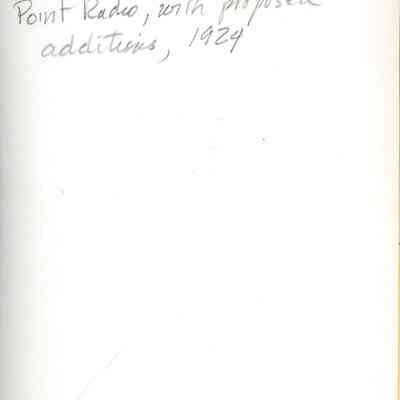 Point Radio, with proposed
additions, 1924